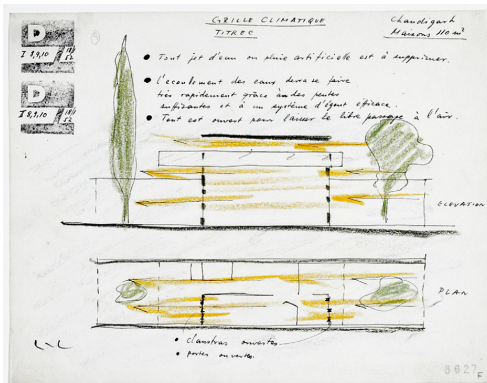 GRILLE CLIMATIQUE
TITRE C
Chandigarh
Maisons 110 m²
D
I 8,9,10
D
I 8,9,10
• Tout jet d'eau ou pluie artificielle est à supprimer.
• L'écoulement des eaux devra se faire
très rapidement grâce à des pentes
suffisantes et à un système d'égout efficace.
• Tout est ouvert pour laisser le libre passage à l'air.
ELEVATION
PLAN
• claustras ouvertes
• portes ouvertes.
L-C
6627
F